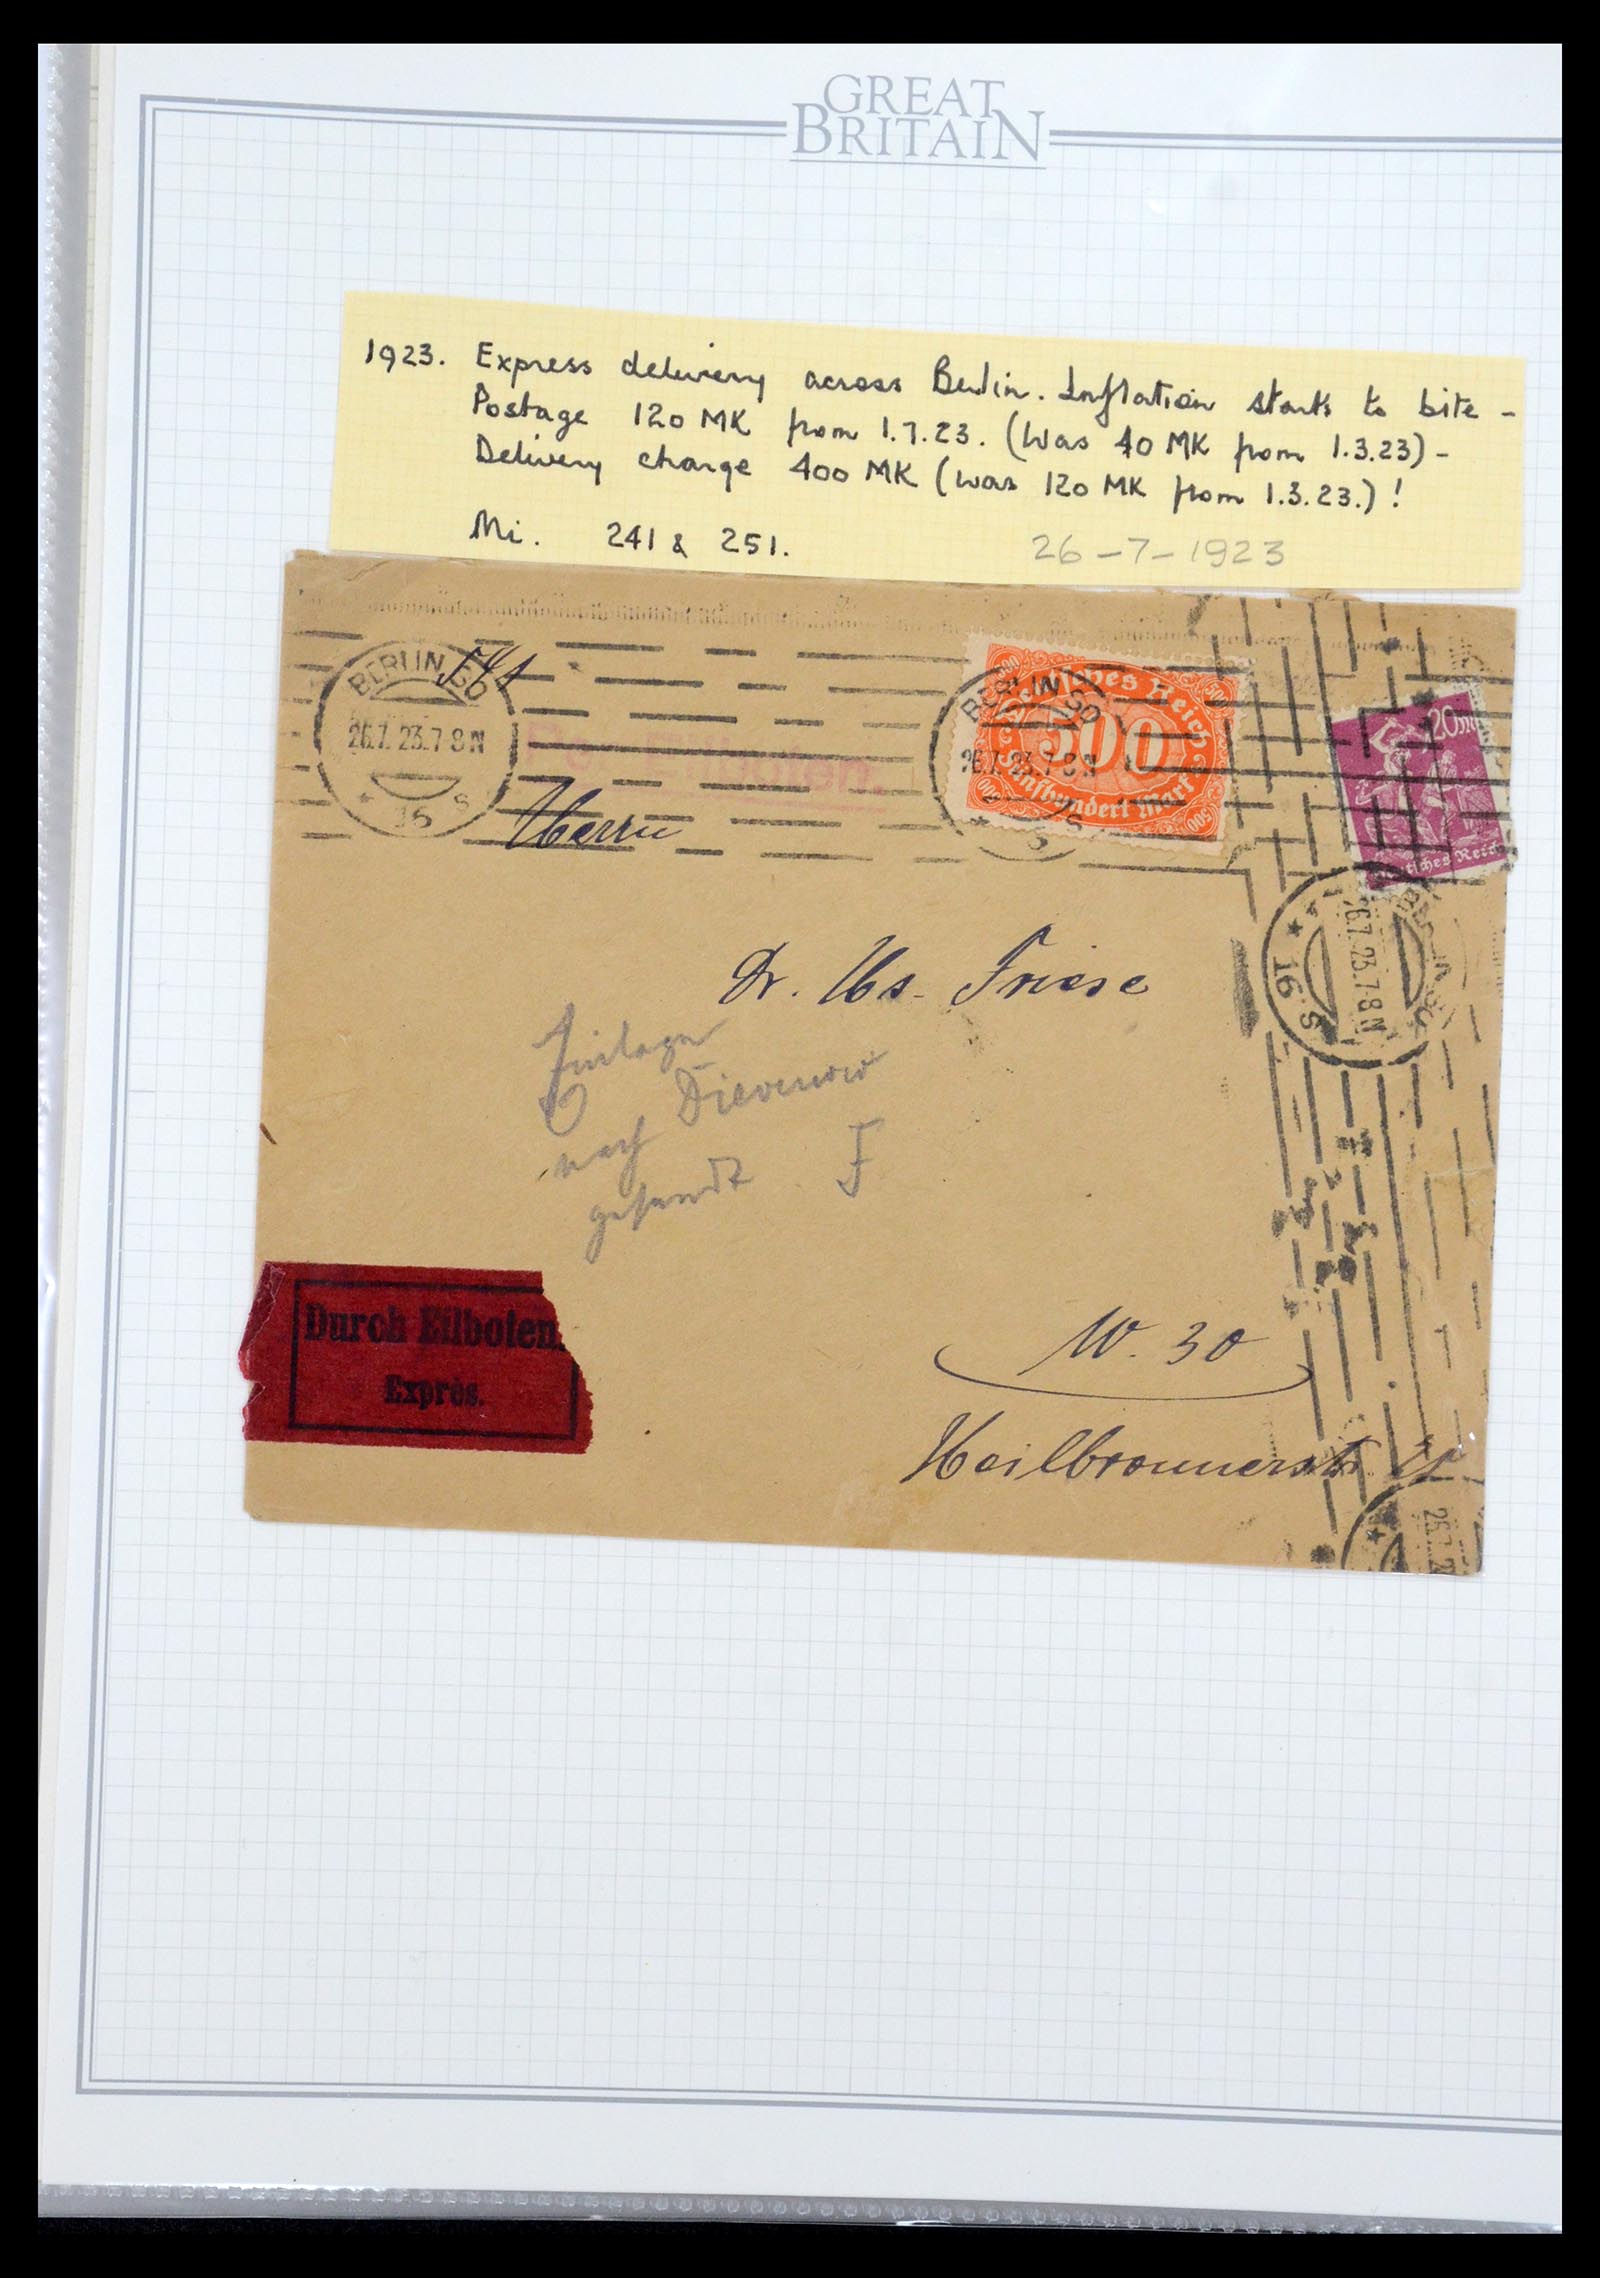 GREAT
BRITAIN
1923. Express delivery across Berlin. Inflation starts to bite -
Postage 120 MK from 1.7.23. (Was 40 MK from 1.3.23) -
Delivery charge 400 MK (was 120 MK from 1.3.23.) !
Mi. 241 & 251.
26-7-1923
BERLIN SO
26.7.23.7-8N
* 16 s
Per Eilboten.
BERLIN SO
26.7.23.7-8N
Deutsches Reich
500
Fünfhundert Mark
20 M
Deutsches Reich
BERLIN SO
26.7.23.7-8N
* 16 s
Herrn
Dr. Hs. Friese
nach Dievenow
gesandt F
Durch Eilboten.
Exprès.
W. 30
Heilbronnerstr.
26.7.2